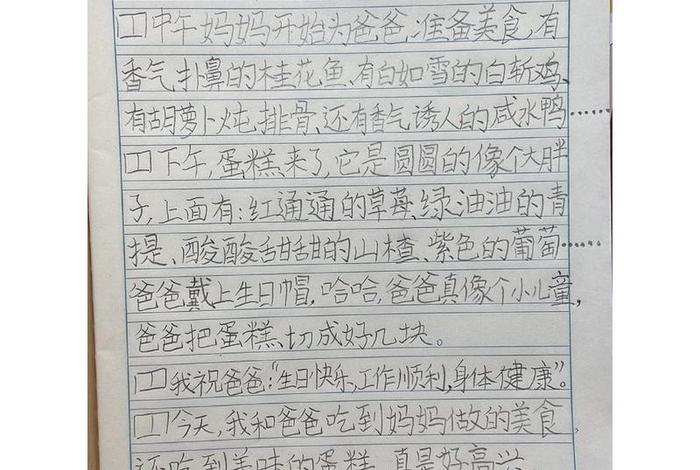 中午妈妈开始为爸爸,准备美食,有
香气扑鼻的桂花鱼、有白如雪的白斩鸡、
有胡萝卜炖排骨、还有香气诱人的咸水鸭……
下午,蛋糕来了,它是圆圆的像个大胖
子,上面有:红通通的草莓、绿油油的青
提、酸酸甜甜的山楂、紫色的葡萄……
爸爸戴上生日帽,哈哈,爸爸真像个小儿童,
爸爸把蛋糕切成好几块。
我祝爸爸:“生日快乐,工作顺利,身体健康”。
今天,我和爸爸吃到妈妈做的美食,
还吃到美味的蛋糕,真是好高兴